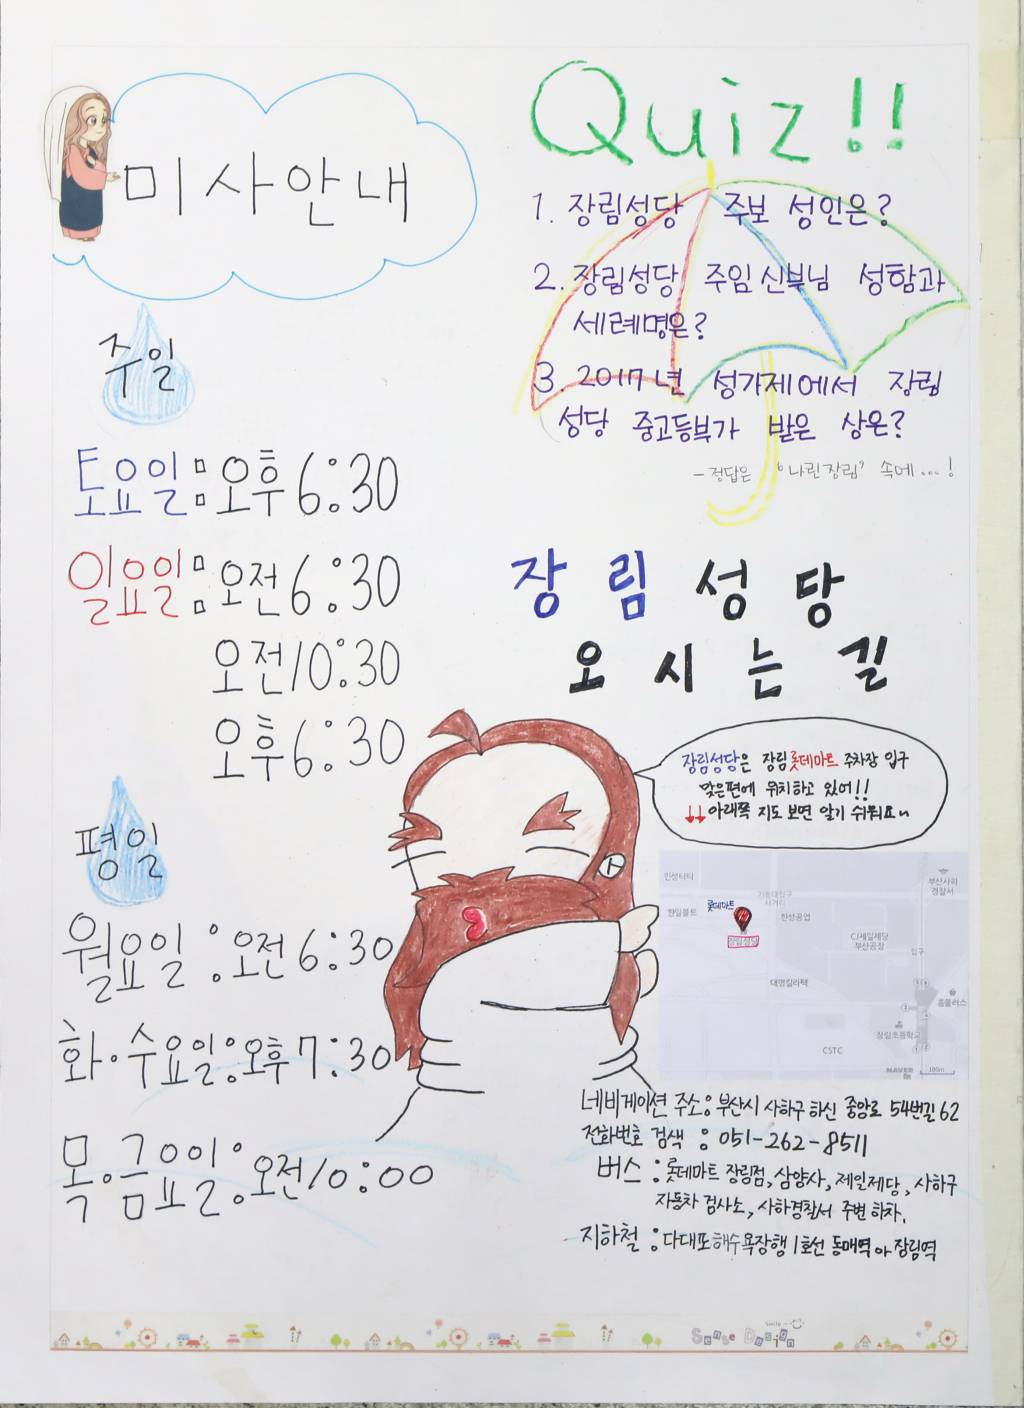 미사안내
주일
토요일: 오후 6:30
일요일: 오전 6:30
오전 10:30
오후 6:30
평일
월요일: 오전 6:30
화·수요일: 오후 7:30
목·금요일: 오전 10:00
Quiz!!
1. 장림성당 주보 성인은?
2. 장림성당 주임신부님 성함과
세례명은?
3. 2017년 성가제에서 장림
성당 중고등부가 받은 상은?
- 정답은 '나린장림' 속에...!
장림성당
오시는길
장림성당은 장림롯데마트 주차장 입구
맞은편에 위치하고 있어!!
↓↓아래쪽 지도 보면 알기 쉬워요~
인성티타
부산사하
경찰서
사거리
한일볼트
롯데마트
한성공업
장림성당
CJ제일제당
부산공장
입구
대명킬라텍
홈플러스
장림초등학교
CSTC
NAVER
100m
네비게이션 주소: 부산시 사하구 하신 중앙로 54번길 62
전화번호 검색 : 051-262-8511
버스 : 롯데마트 장림점, 삼양사, 제일제당, 사하구
자동차 검사소, 사하경찰서 주변 하차.
지하철 : 다대포해수욕장행 1호선 동매역 or 장림역
smile
Sense Design